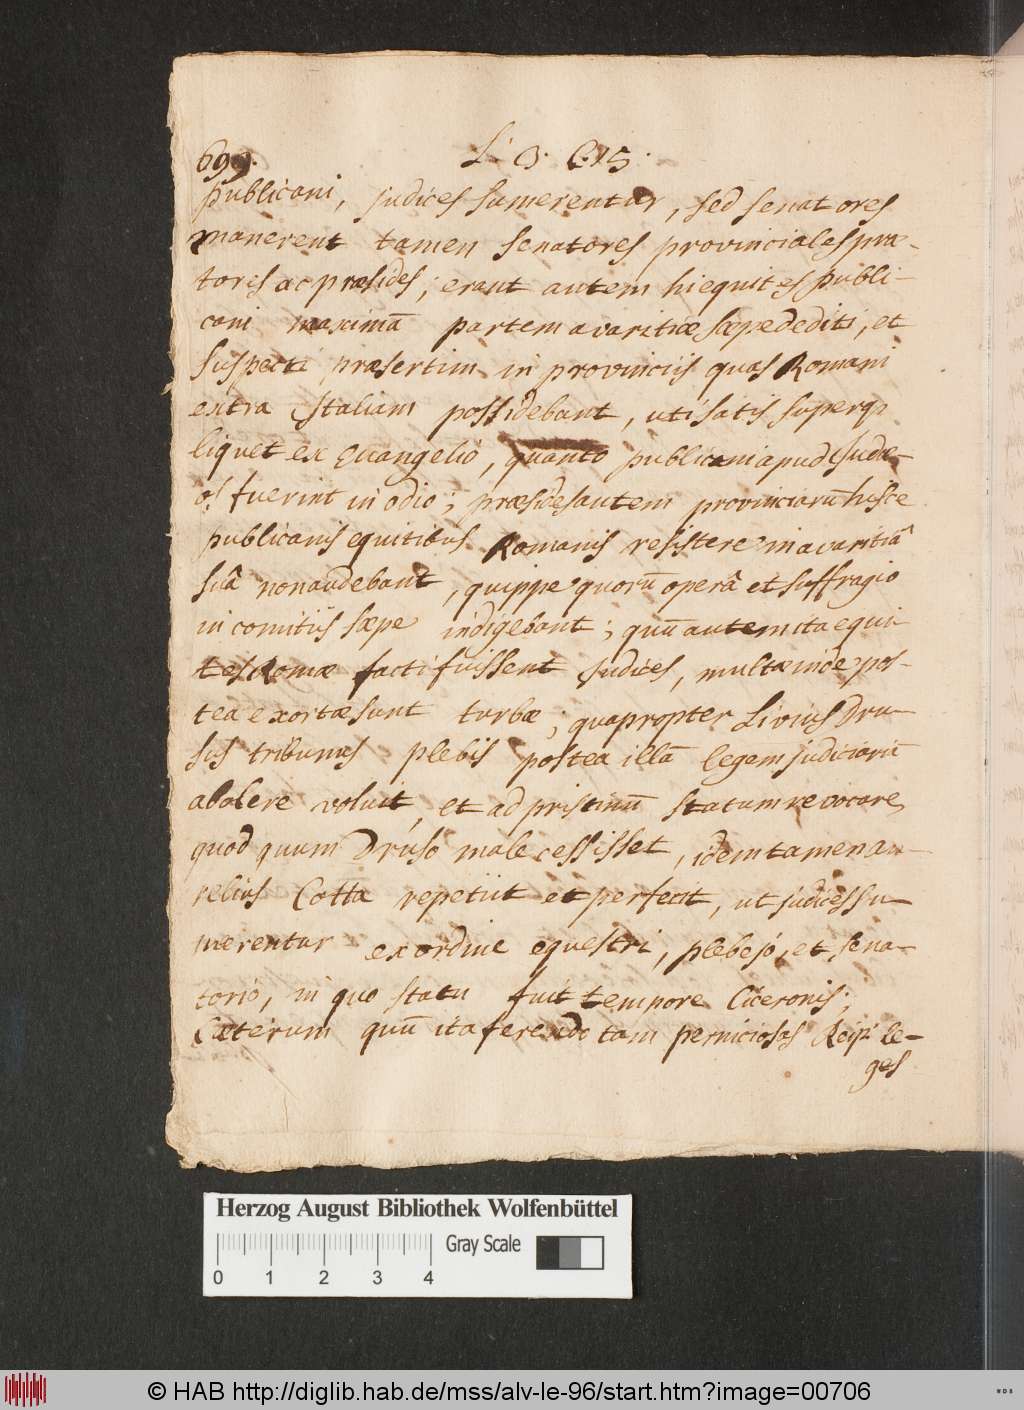 699. L. 3. C. 15.
publicani, judices sumerentur, sed senatores
manerent tamen senatores provinciales præ-
tores ac præsides; erant autem hi equites publi-
cani maximā partem avaritiæ sæpe dediti, et
suspecti præsertim in provinciis quas Romani
extra Italiam possidebant, uti satis superq
liquet ex Euangelio, quanto publicani apud Judæ-
os fuerint in odio; præsides autem provinciarū hisce
publicanis equitibus Romanis resistere in avaritiâ
suâ non audebant, quippe quorū operâ et suffragio
in comitiis sæpe indigebant; quū autem ita equi-
tes Romæ facti fuissent judices, multæ inde pos-
tea exortæ sunt turbæ; quapropter Livius Dru-
sus tribunus plebis postea illā legem judiciariā
abolere voluit, et ad pristinū statum revocare,
quod quum Druso male cessisset, idem tamen au-
relius Cotta repetiit et perfecit, ut judices su-
merentur ex ordine equestri, plebejo, et sena-
torio, in quo statu fuit tempore Ciceronis;
Cæterum quū ita ferendo tam perniciosas Reip: le-
ges
Herzog August Bibliothek Wolfenbüttel
0 1 2 3 4 Gray Scale
© HAB http://diglib.hab.de/mss/alv-le-96/start.htm?image=00706